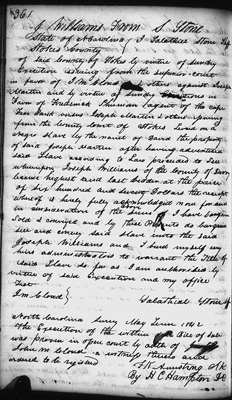 J Williams From S. Stone
State of N Carolina I Salathiel Stone Shff
Stokes County
of said County of Stokes by virtue of sundry
Execution issuing from the superior court
in favor of John Cloud & others against Joseph
Martin and by virtue of sundry in
Favor of Frederick Thurman agent of the cape
Fear Bank versus Joseph Martin & others issuing
from the County Court of Stokes sell a
Negro slave by the name of David the property
of said Joseph Martin after having advertised
said Slave according to Law proceeded to sell
whereupon Joseph Williams of the County of Surry
became highest and last bidder at the price
of six hundred and seventy Dollars the receipt
whereof is hereby fully acknowledged now for and
in consideration of the sum I have bargain
Sold & conveyed and by these presents do bargain
sell and convey said slave unto the said
Joseph Williams and I bind myself my
heirs administrators to warrant the Title of
said Slave so far as I am authorised by
virtue of said Execution and my office
Test
Jm Cloud Salathiel Stone shff
North Carolina Surry May Term 1842
The Execution of the within Bill of Sale
was proven in open court by oath of
John M Cloud a witness thereto and
ordered to be registered
F K Armstrong Clk
By H C Hampton DC